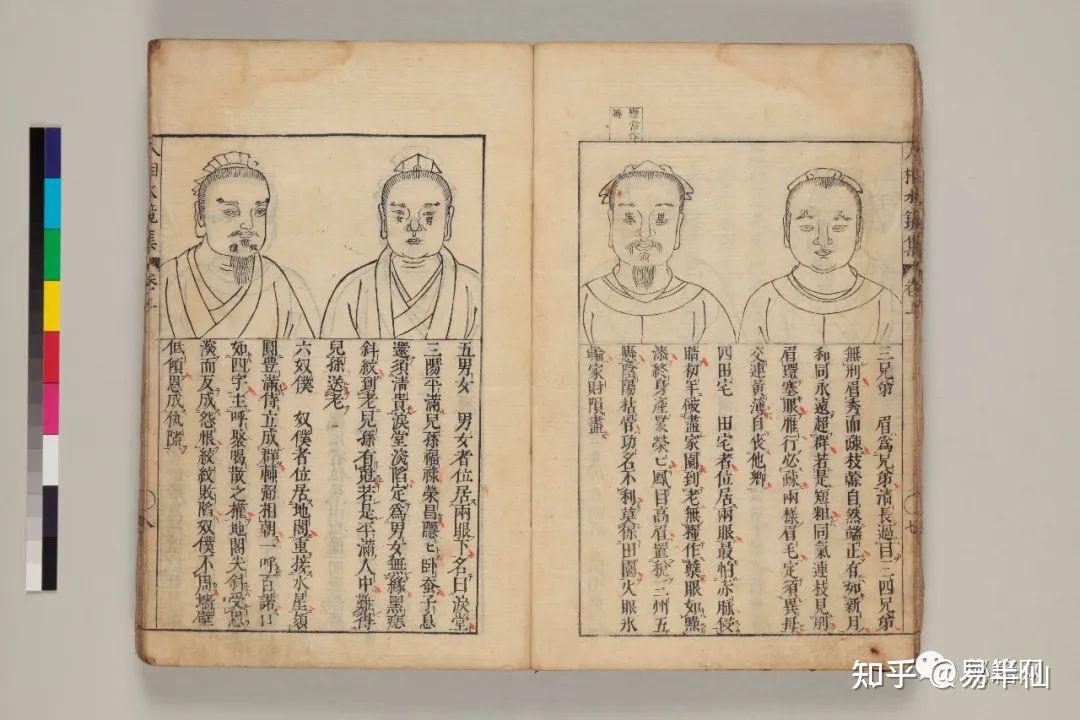 三兄弟　眉爲兄弟清長過目三四兄弟
無刑眉秀而疎枝幹自然端正有如新月
和同永遠超群若是短粗同氣連技見別
眉環塞眼雁行必疎兩樣眉毛定須異母
交連黃薄自喪他鄉
四田宅　田宅者位居兩眼最怕赤脉侵
睛初年破盡家園到老無糧作孽眼如點
漆終身產業榮亡鳳目高眉置稅三州五
縣陰陽枯骨功名不利莫徐田園火眼氷
輪家財隕盡
五男女　男女者位居兩眼下名曰淚堂
三陽平滿兒孫福祿榮昌懸亡臥蚕子息
還須清貴淚堂深陷定爲男女無緣黑痣
斜紋到老兒孫有尅若是平滿人中難得
兒孫送老
六奴僕　奴僕者位居地閣重接水星頦
圓豐滿侍立成群輔弼相朝一呼百諾口
如四字主呼聚喝散之權地閣尖斜受恩
深而反成怨恨紋紋敗陷奴僕不周墻壁
低傾恩成仇隙
男
女
奴
僕
人相水鏡集
卷上
八
七
知乎 @易半仙